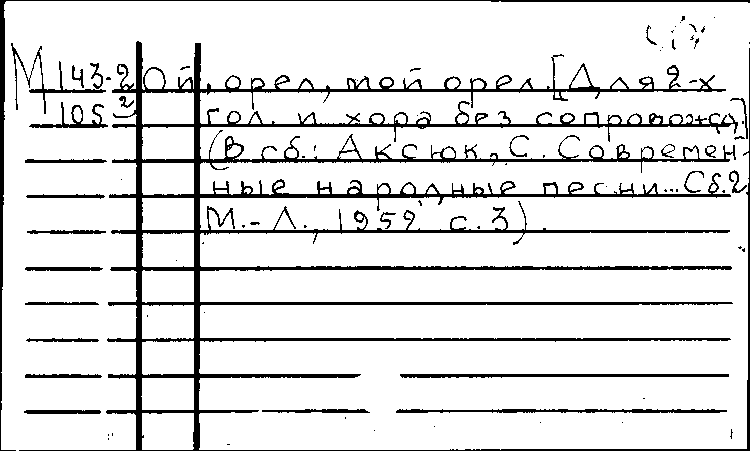 М 143-2 Ой, орел, мой орел. [Для 2-х
105 2 гол. и хора без сопровожд.]
(В сб.: Аксюк, С. Современ-
ные народные песни... Сб. 2.
М.-Л., 1952 с. 3).